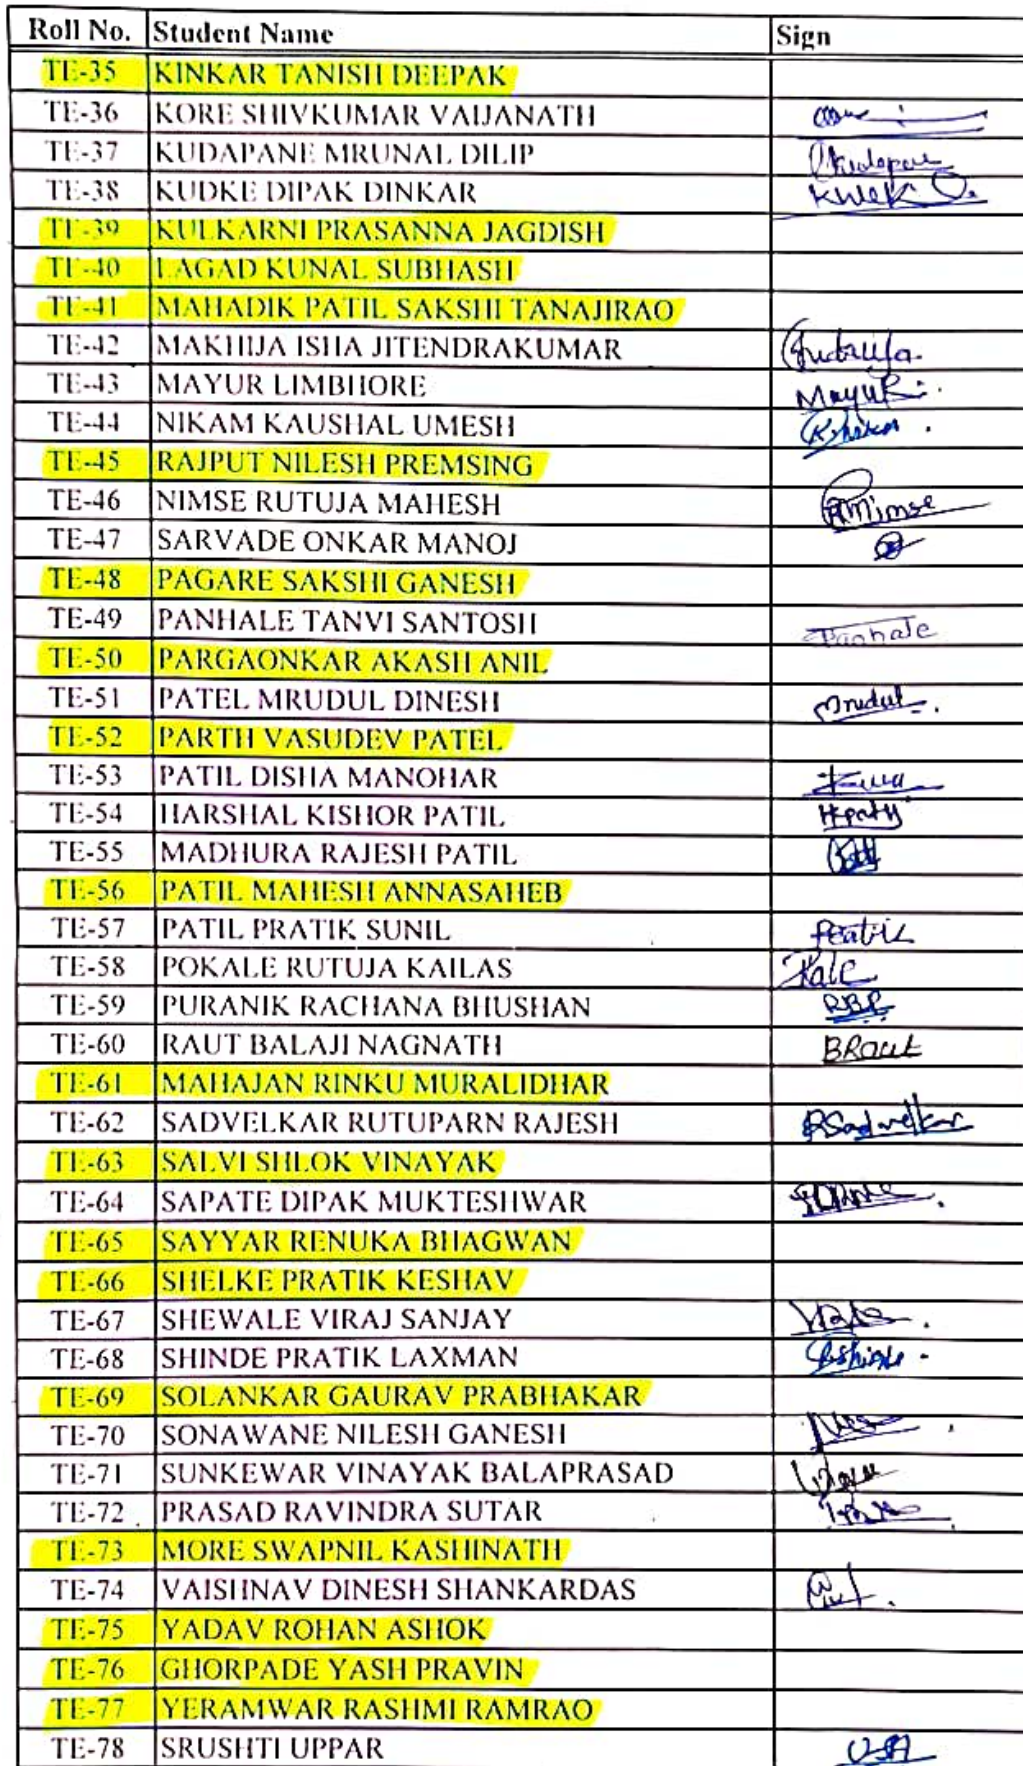 Roll No. Student Name Sign
TE-35 KINKAR TANISH DEEPAK
TE-36 KORE SHIVKUMAR VAIJANATH
TE-37 KUDAPANE MRUNAL DILIP
TE-38 KUDKE DIPAK DINKAR
TE-39 KULKARNI PRASANNA JAGDISH
TE-40 LAGAD KUNAL SUBHASH
TE-41 MAHADIK PATIL SAKSHI TANAJIRAO
TE-42 MAKHIJA ISHA JITENDRAKUMAR
TE-43 MAYUR LIMBHORE
TE-44 NIKAM KAUSHAL UMESH
TE-45 RAJPUT NILESH PREMSING
TE-46 NIMSE RUTUJA MAHESH
TE-47 SARVADE ONKAR MANOJ
TE-48 PAGARE SAKSHI GANESH
TE-49 PANHALE TANVI SANTOSH Panhale
TE-50 PARGAONKAR AKASH ANIL
TE-51 PATEL MRUDUL DINESH Mrudul
TE-52 PARTH VASUDEV PATEL
TE-53 PATIL DISHA MANOHAR
TE-54 HARSHAL KISHOR PATIL
TE-55 MADHURA RAJESH PATIL
TE-56 PATIL MAHESH ANNASAHEB
TE-57 PATIL PRATIK SUNIL
TE-58 POKALE RUTUJA KAILAS
TE-59 PURANIK RACHANA BHUSHAN RBP
TE-60 RAUT BALAJI NAGNATH BRaut
TE-61 MAHAJAN RINKU MURALIDHAR
TE-62 SADVELKAR RUTUPARN RAJESH RSadvelkar
TE-63 SALVI SHLOK VINAYAK
TE-64 SAPATE DIPAK MUKTESHWAR
TE-65 SAYYAR RENUKA BHAGWAN
TE-66 SHELKE PRATIK KESHAV
TE-67 SHEWALE VIRAJ SANJAY
TE-68 SHINDE PRATIK LAXMAN
TE-69 SOLANKAR GAURAV PRABHAKAR
TE-70 SONAWANE NILESH GANESH
TE-71 SUNKEWAR VINAYAK BALAPRASAD
TE-72 PRASAD RAVINDRA SUTAR
TE-73 MORE SWAPNIL KASHINATH
TE-74 VAISHNAV DINESH SHANKARDAS
TE-75 YADAV ROHAN ASHOK
TE-76 GHORPADE YASH PRAVIN
TE-77 YERAMWAR RASHMI RAMRAO
TE-78 SRUSHTI UPPAR